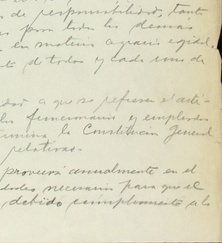 de responsabilidad, tanto
para todos los demás
en materia agraria ejidal.
de todos y cada uno de
a que se refiere el artí-
los funcionarios y empleados
la Constitución General
relativas.
proveerá anualmente en el
necesaria para que el
debido cumplimiento a la